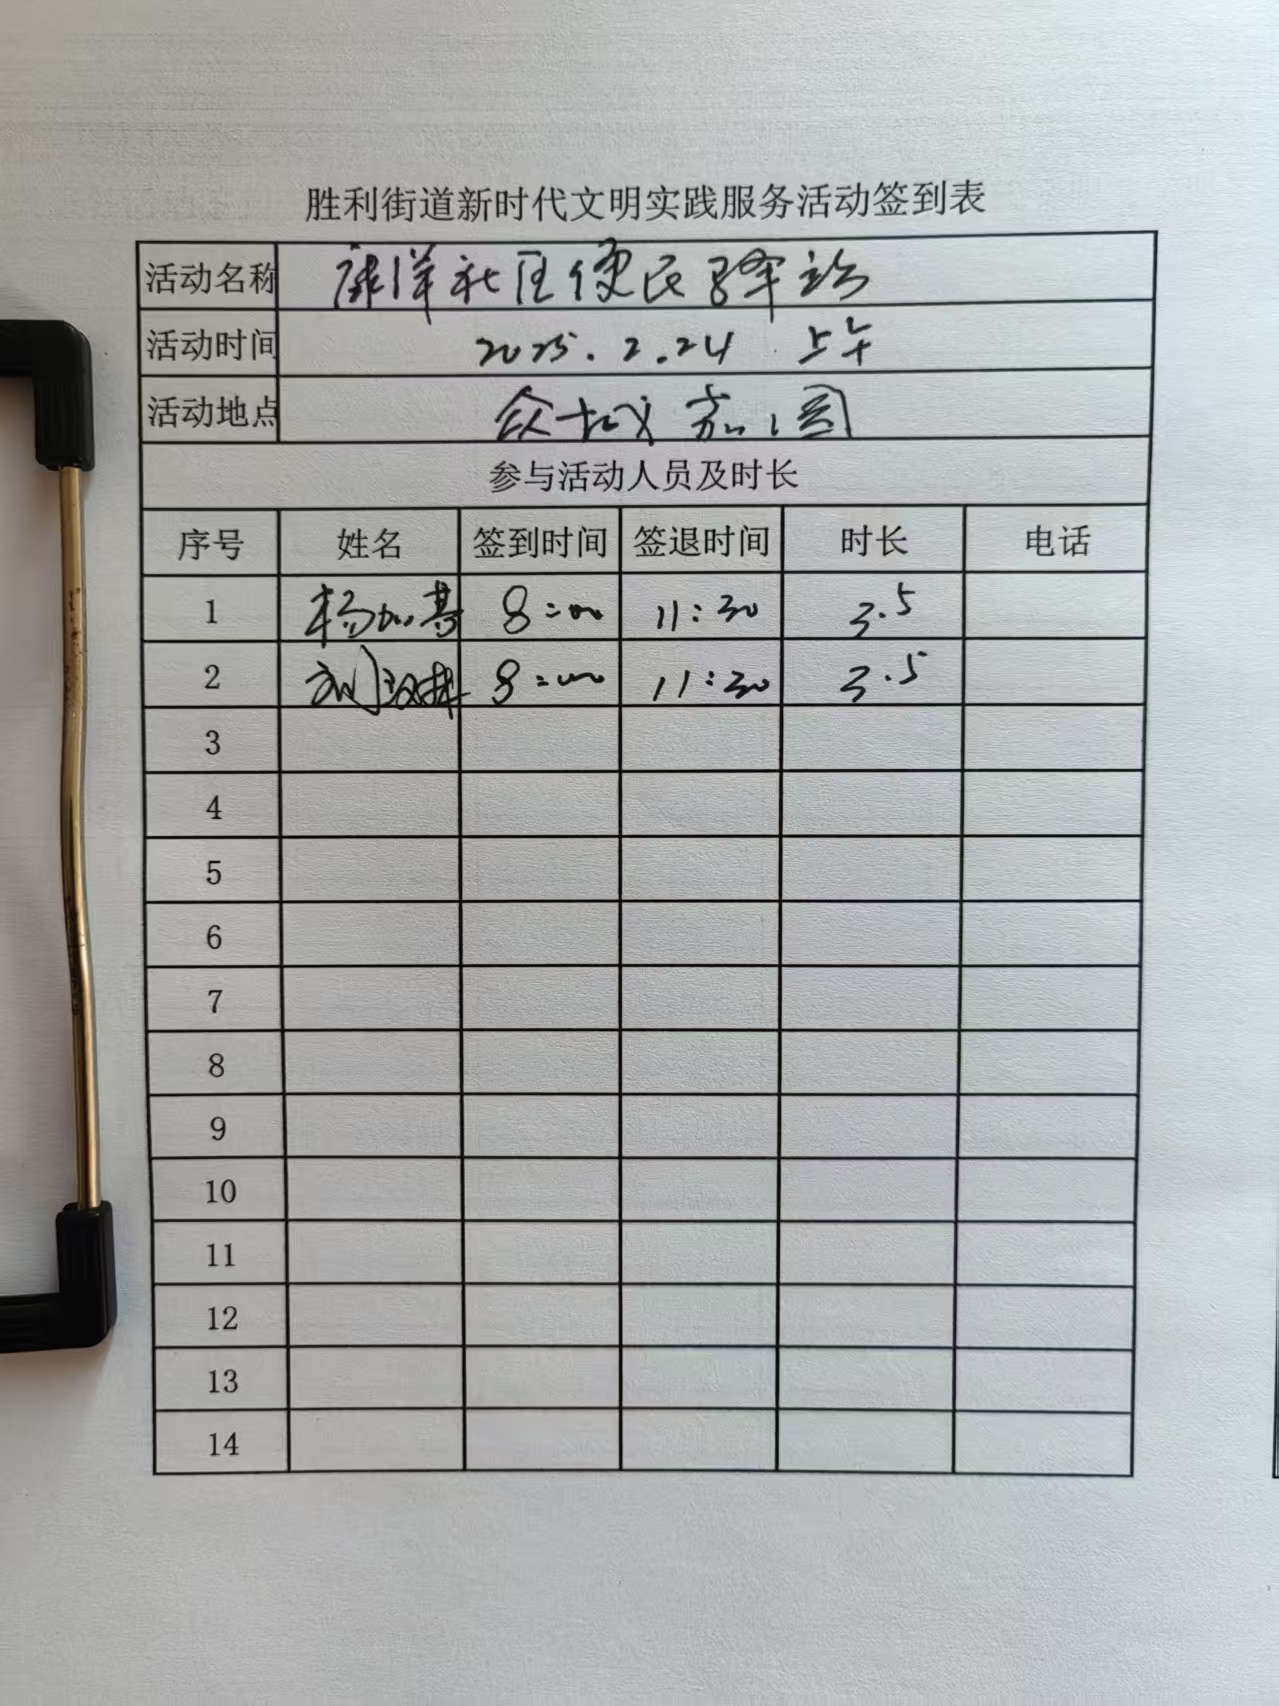 胜利街道新时代文明实践服务活动签到表
活动名称 康洋社区便民驿站
活动时间 2025.2.24 上午
活动地点 众城嘉园
参与活动人员及时长
序号 姓名 签到时间 签退时间 时长 电话
1 杨 8:00 11:30 3.5
2 刘 8:00 11:30 3.5
3
4
5
6
7
8
9
10
11
12
13
14